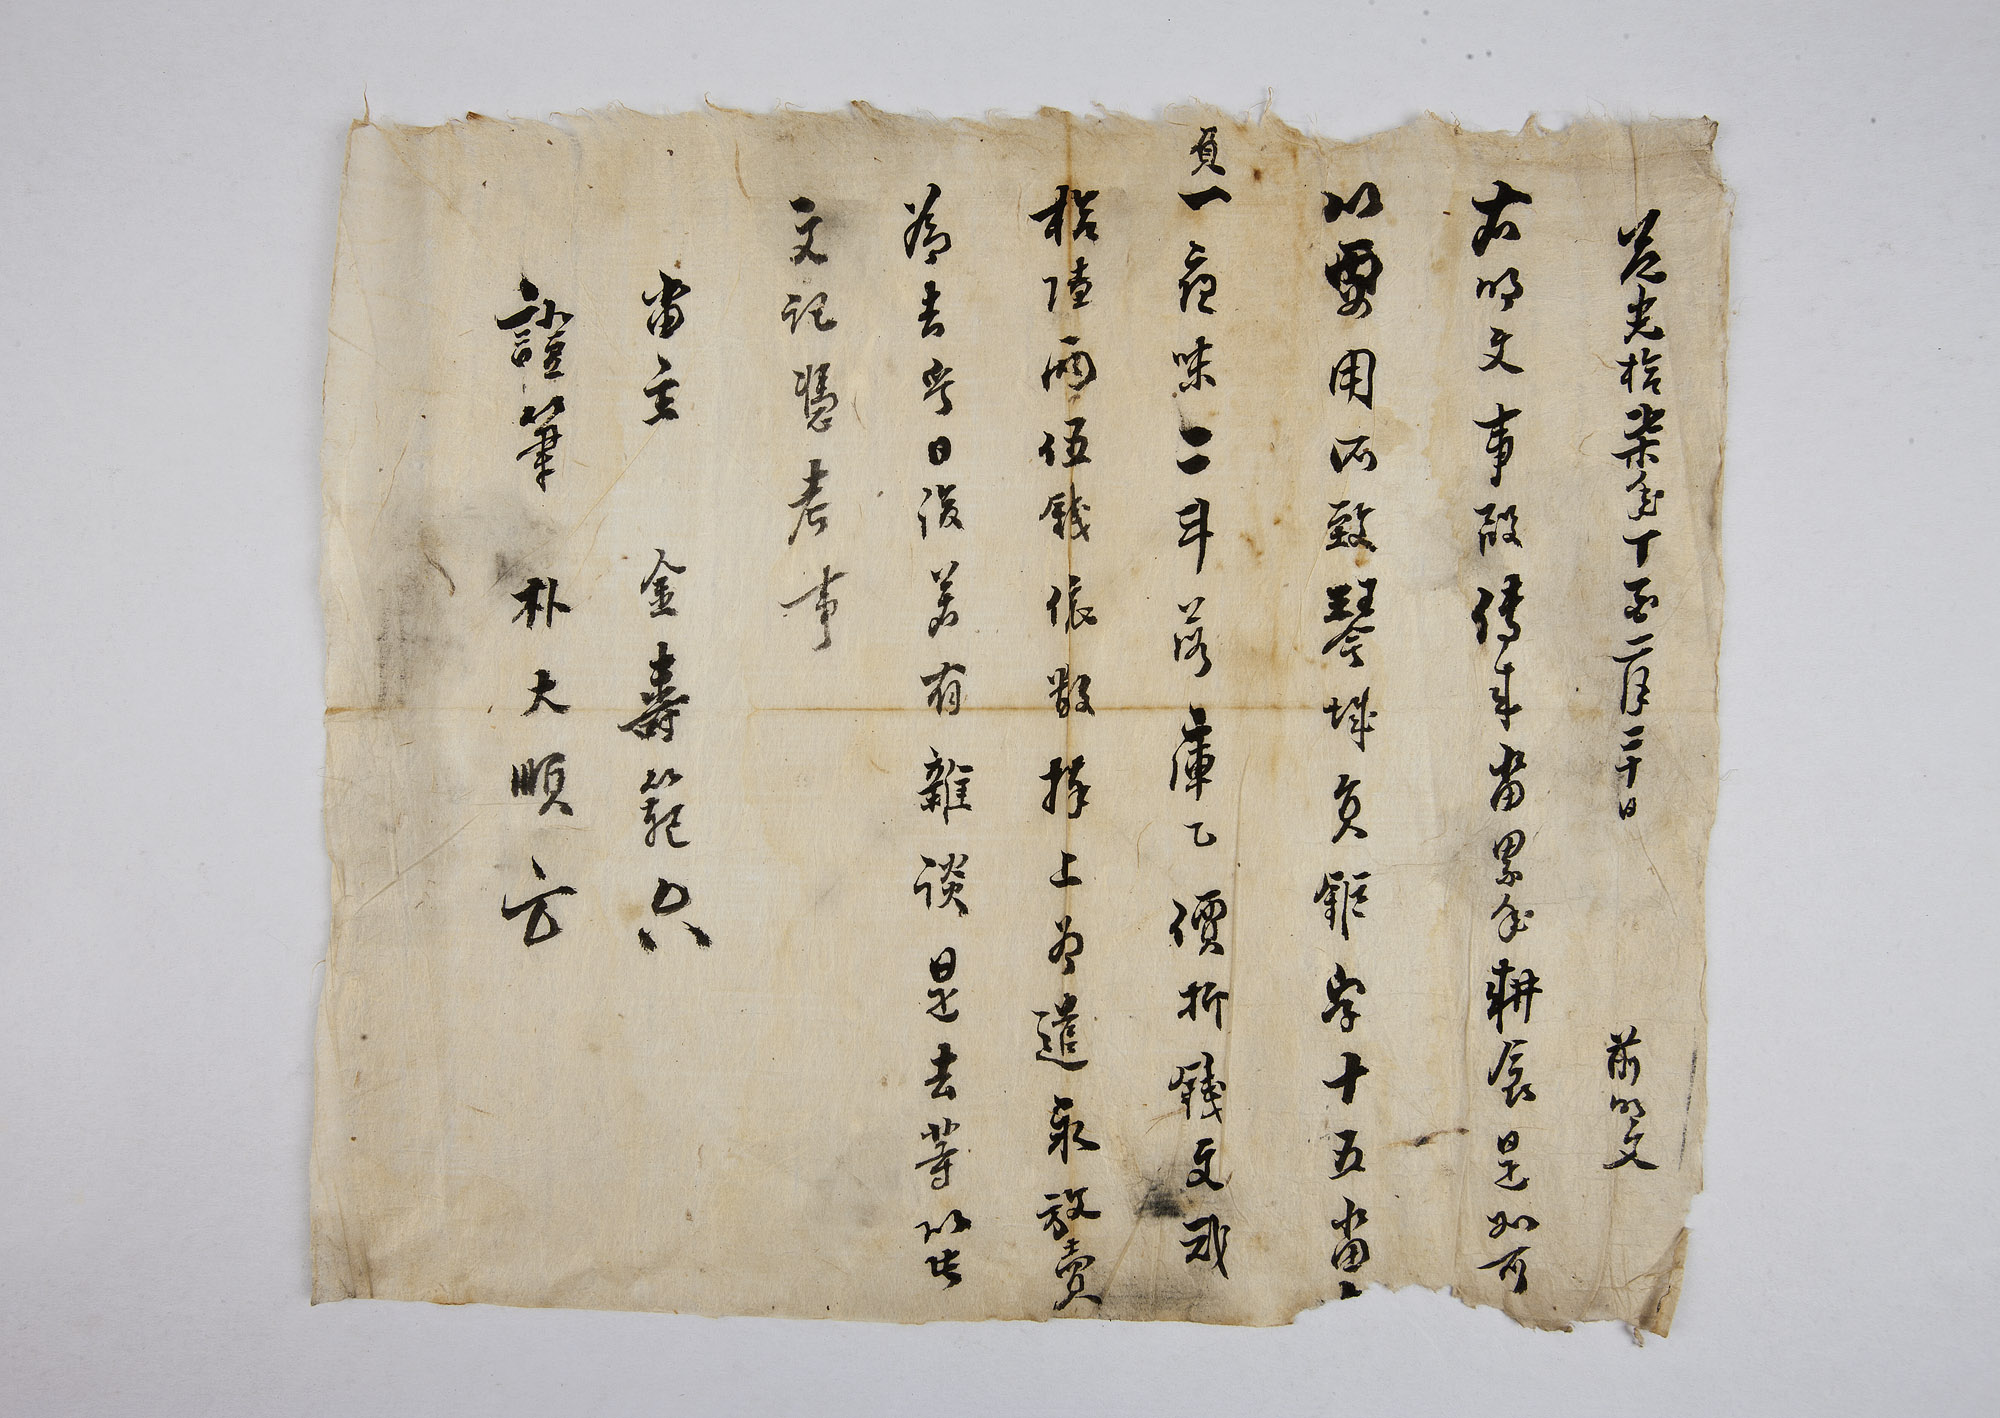 道光拾柒年丁酉二月二十日 前明文
右明文事段傳來畓累年耕食是如可
以要用所致琴城員鉅字十五畓二
負一夜味二斗落庫乙價折錢文貳
拾陸兩伍錢依數捧上爲遣永放賣
爲去乎日後若有雜談是去等以此
文記憑考事
畓主 金壽範
證筆 朴大順